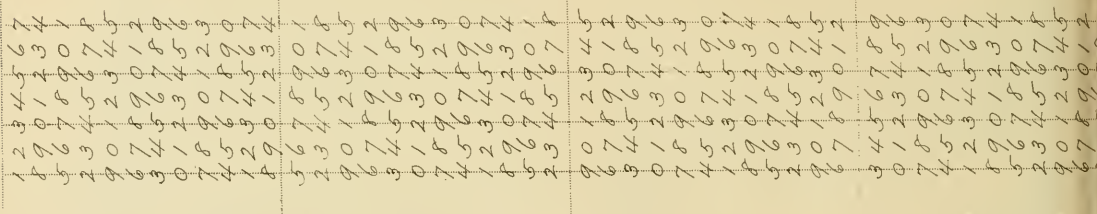 7 4 1 8 5 2 9 6 3 0 7 4 1 8 5 2 9 6 3 0 7 4 1 8 5 2 9 6 3 0 7 4 1 8 5 2 9 6 3 0 7 4 1 8 5 2
6 3 0 7 4 1 8 5 2 9 6 3 0 7 4 1 8 5 2 9 6 3 0 7 4 1 8 5 2 9 6 3 0 7 4 1 8 5 2 9 6 3 0 7 4 1
5 2 9 6 3 0 7 4 1 8 5 2 9 6 3 0 7 4 1 8 5 2 9 6 3 0 7 4 1 8 5 2 9 6 3 0 7 4 1 8 5 2 9 6 3 0
4 1 8 5 2 9 6 3 0 7 4 1 8 5 2 9 6 3 0 7 4 1 8 5 2 9 6 3 0 7 4 1 8 5 2 9 6 3 0 7 4 1 8 5 2 9
3 0 7 4 1 8 5 2 9 6 3 0 7 4 1 8 5 2 9 6 3 0 7 4 1 8 5 2 9 6 3 0 7 4 1 8 5 2 9 6 3 0 7 4 1 8
2 9 6 3 0 7 4 1 8 5 2 9 6 3 0 7 4 1 8 5 2 9 6 3 0 7 4 1 8 5 2 9 6 3 0 7 4 1 8 5 2 9 6 3 0 7
1 8 5 2 9 6 3 0 7 4 1 8 5 2 9 6 3 0 7 4 1 8 5 2 9 6 3 0 7 4 1 8 5 2 9 6 3 0 7 4 1 8 5 2 9 6